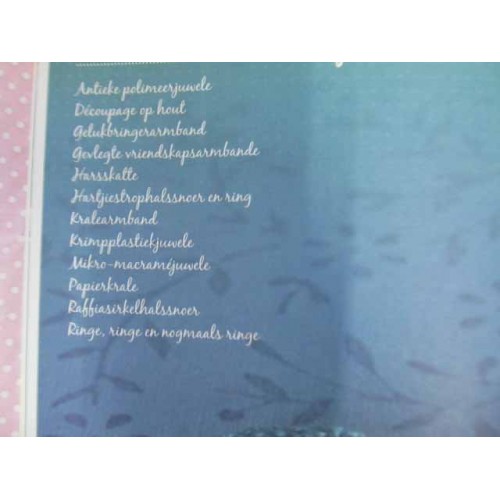 Antieke polimeerjuwele
Découpage op hout
Gelukbringerarmband
Gevlegte vriendskapsarmbande
Harsskatte
Hartjiestrophalssnoer en ring
Kralearmband
Krimpplastiekjuwele
Mikro-macraméjuwele
Papierkrale
Raffiasirkelhalssnoer
Ringe, ringe en nogmaals ringe